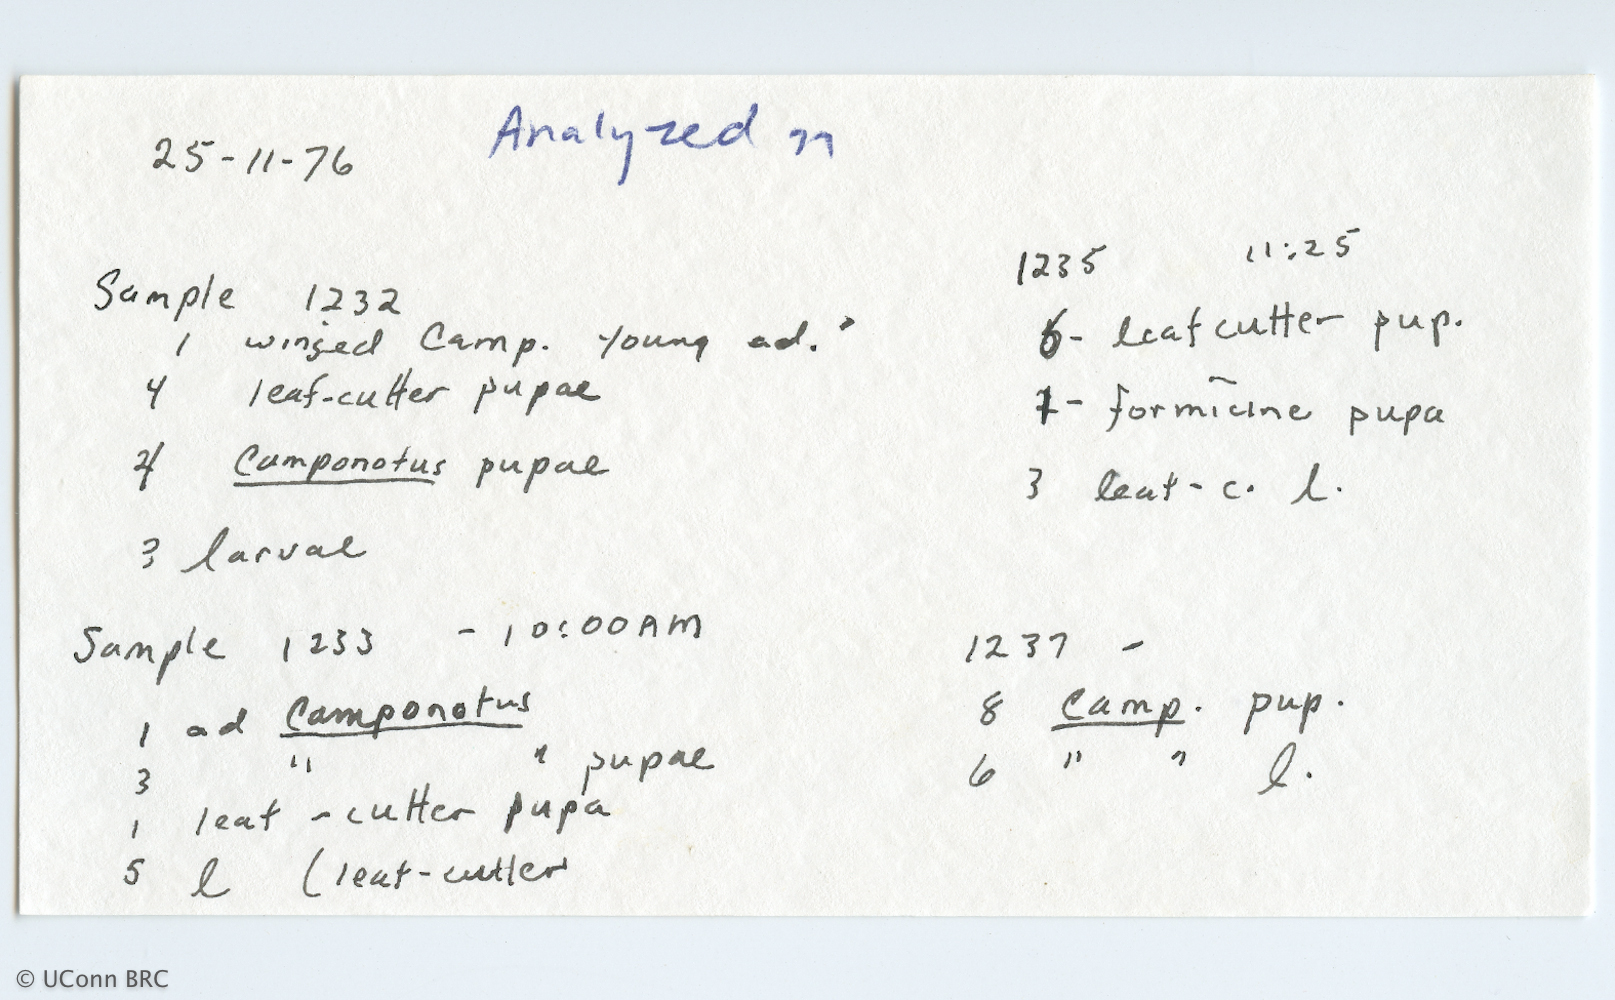 25-11-76
Analyzed
Sample 1232
1 winged Camp. young ad.
4 leaf-cutter pupae
Camponotus pupae
3 larvae
Sample 1233 - 10:00 AM
1 ad Camponotus
3 " " pupae
1 leaf-cutter pupa
5 l (leaf-cutter
1235 11:25
6- leafcutter pup.
1- formicine pupa
3 leaf-c. l.
1237 -
8 Camp. pup.
6 " " l.
© UConn BRC